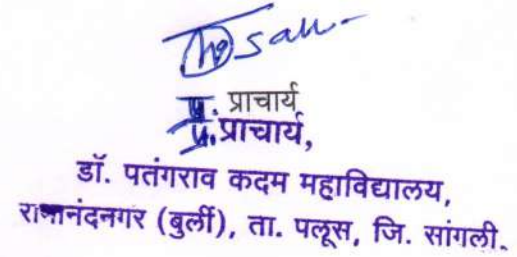 प्र. प्राचार्य
प्र.प्राचार्य,
डॉ. पतंगराव कदम महाविद्यालय,
रामानंदनगर (बुर्ली), ता. पलूस, जि. सांगली.